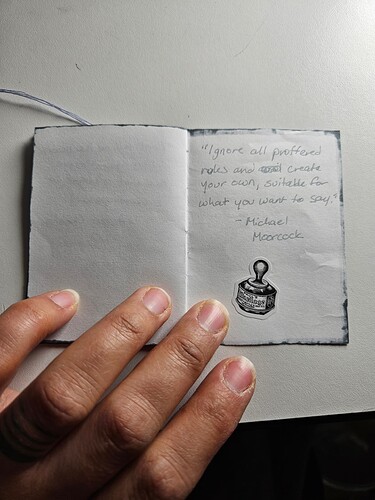 "Ignore all proffered
rules and create
your own, suitable for
what you want to say."
- Michael
Moorcock